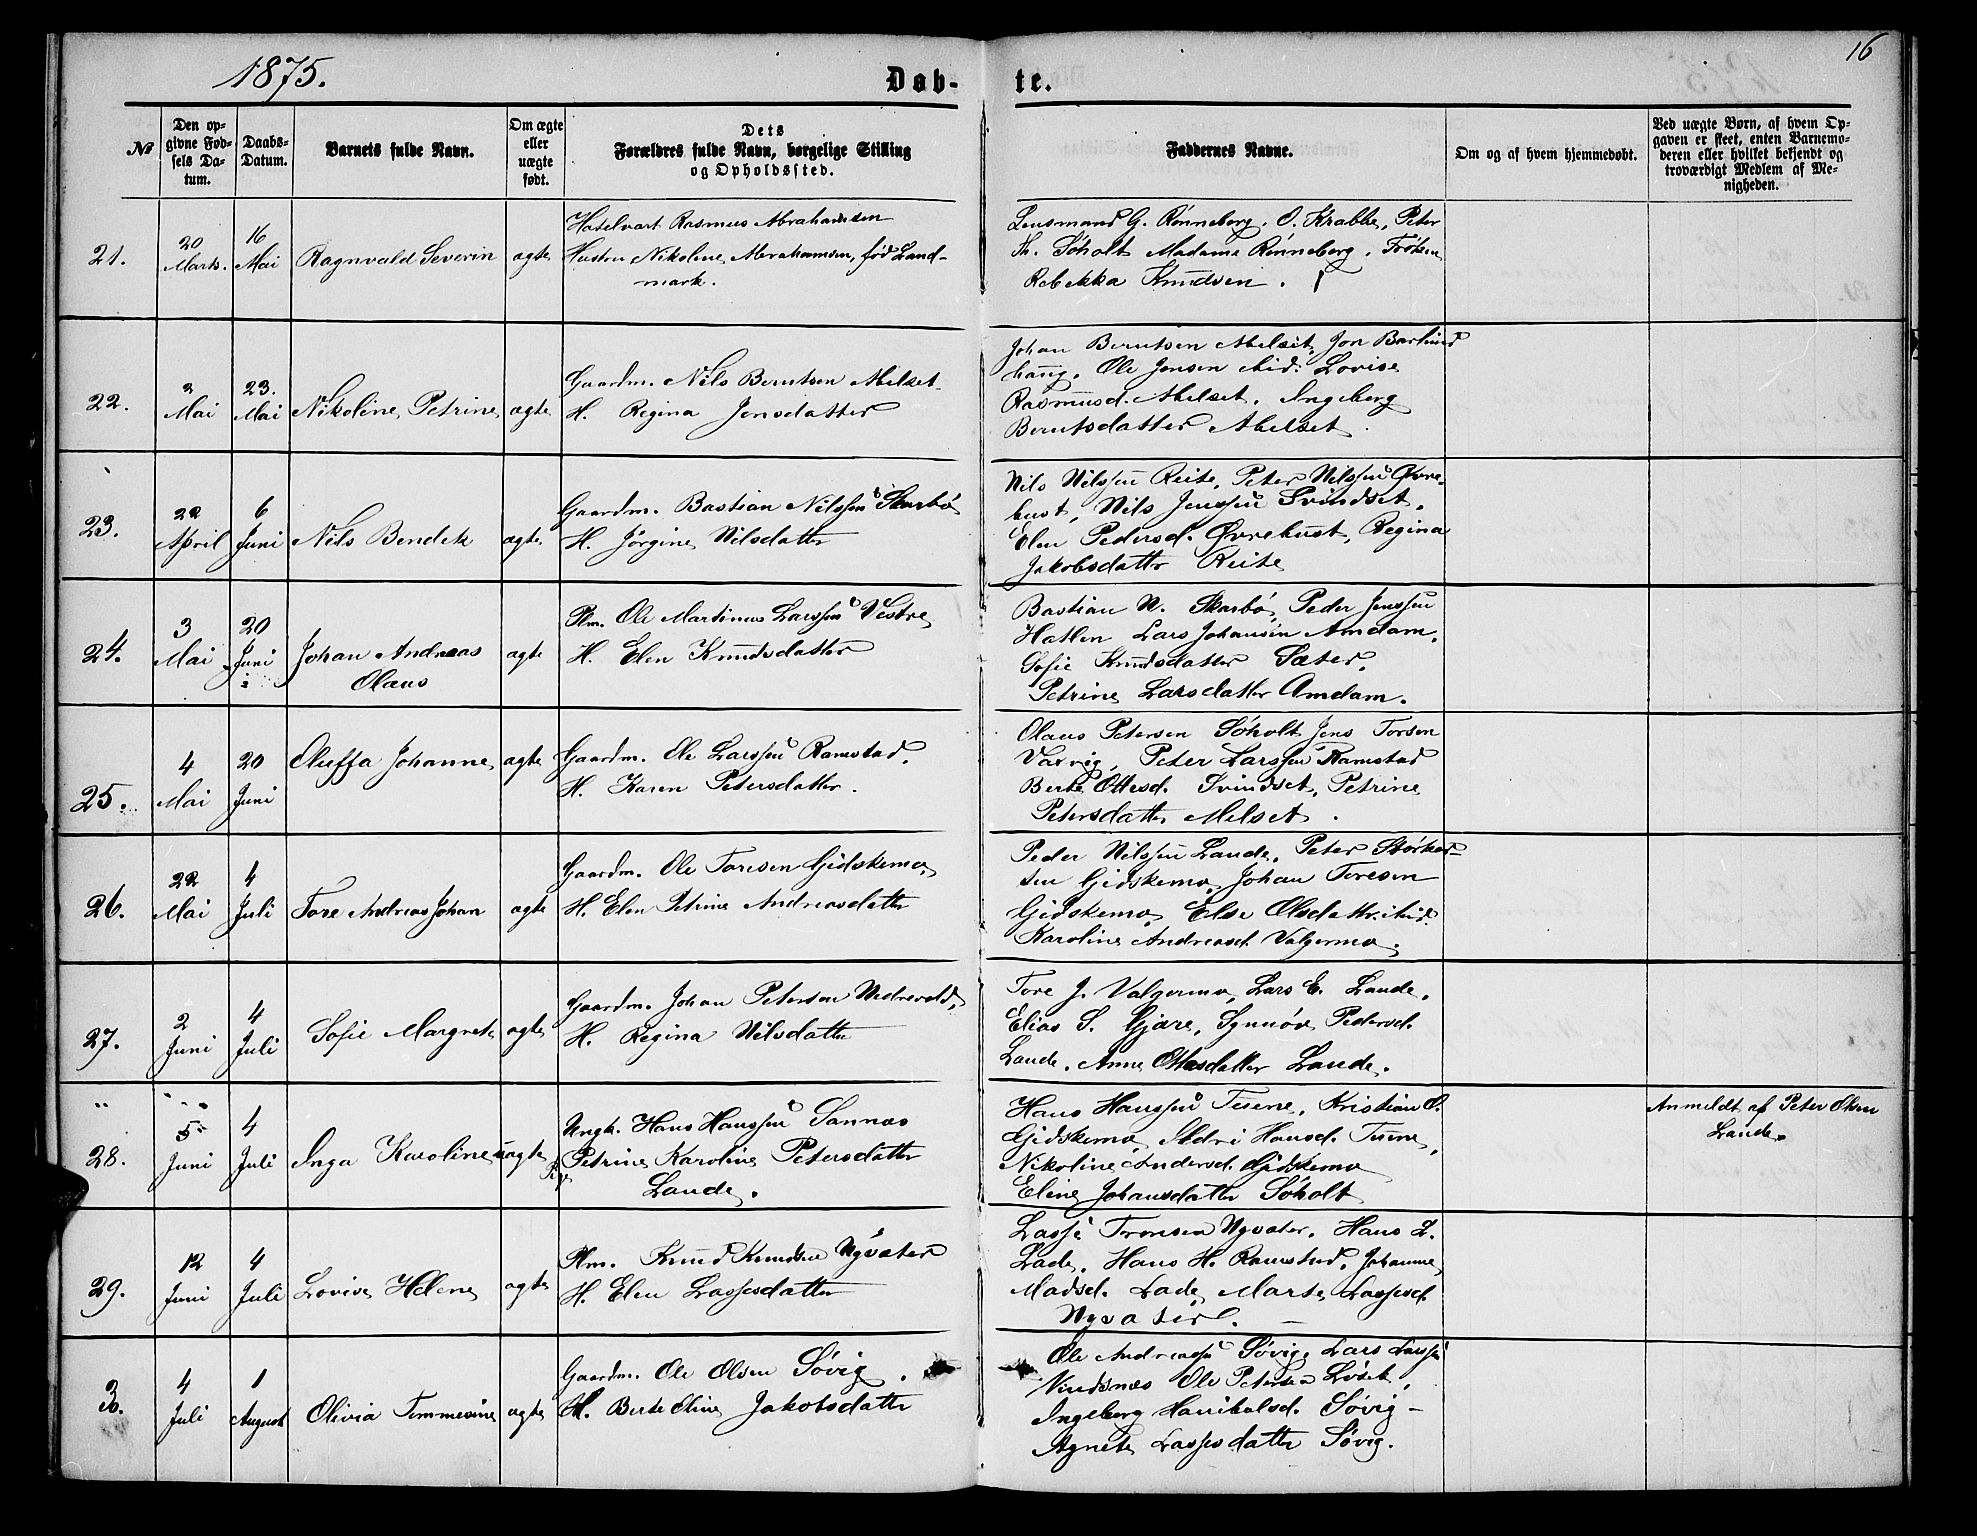 1875.
Døb-
te.
16
No
Den op-
givne Fød-
sels Da-
tum.
Daabs-
Datum.
Barnets fulde Navn.
Om ægte
eller
uægte
født.
Dets
Forældres fulde Navn, borgelige Stilling
og Opholdssted.
Faddernes Navne.
Om og af hvem hjemmedøbt.
Ved uægte Børn, af hvem Op-
gaven er skeet, enten Barnemo-
deren eller hvilket bekjendt og
troværdigt Medlem af Me-
nigheden.
21.
20
Marts.
16
Mai
Ragnvald Severin
ægte
Hotelvært Rasmus Abrahamsen
Hustru Nikoline Abrahamsen, fød Land-
mark.
Lensmand G. Rønneberg, O. Krabbe, Peter
Th. Søholt Madame Rønneberg, Frøken
Rebekka Knudsen.
22.
2
Mai
23.
Mai
Nikoline Petrine
ægte
Gaardm. Nils Berntsen Abelset
H. Regina Jonsdatter
Johan Berntsen Abelset, Jon
haug, Ole Jensen ibid: Lovise
Rasmusd. Abelset, Ingeborg
Berntsdatter Abelset.
23.
22
April
6
Juni
Nils Bendek
ægte
Gaardm. Bastian Nilssen Skarbø
H. Jørgine Nilsdatter
Nils Nilssen Reite, Peter Nilssen Øvre-
bust, Nils Jenssen Svindset,
Elen Pedersd. Øvrebust, Regina
Jakobsdatter Reite
24.
3
Mai
20
Juni
Johan Andreas
Olaus
ægte
Plm. Ole Martinus Larssen Vestre
H. Elen Knudsdatter
Bastian N. Skarbø, Peder Jenssen
Hatlen Lars Johansen Amdam,
Sofie Knudsdatter Sæter,
Petrine Larsdatter Amdam.
25.
4
Mai
20
Juni
Oluffa Johanne
ægte
Gaardm. Ole Larssen Ramstad,
H. Karen Petersdatter.
Olaus Petersen Søholt Jens Torsen
Vaxvig, Peter Larssen Ramstad
Berte Ottesd. Svindset, Petrine
Petersdatter Melset.
26.
22
Mai
4
Juli
Tore Andreas Johan
ægte
Gaardm. Ole Toresen Gjidskemo,
H. Elen Petrine Andreasdatter
Peder Nilssen Lande, Peter Størker-
sen Gjidskemo, Johan Toresen
Gjidskemo, Else Olsdatter ibid:
Karoline Andreasd. Valgermo.
27.
2
Juni
4
Juli
Sofie Margrete
ægte
Gaardm. Johan Petersen Nedrevold,
H. Regina Nilsdatter
Tore J. Valgermo, Lars E. Lande,
Elias S. Gjære, Synnøve Pedersd.
Lande, Anne Ottesdatter Lande.
28.
5
Juni
4
Juli
Inga Karoline
uægte
Ungk. Hans Hanssen Sannæs
Pige Petrine Karoline Petersdatter
Lande.
Hans Hanssen Tusene, Kristian O.
Gjidskemo, Sidri Hansd. Tusene,
Nikoline Andersd. Gjidskemo
Eline Johansdatter Søholt
Anmeldt af Peter Olsen
Lande.
29.
12
Juni
4
Juli
Lovise Helene
ægte
Plm. Knud Knudsen Nysæter
H. Elen Lassesdatter
Lasse Tronsen Nysæter, Hans L.
Lade, Hans H. Ramstad, Johanne
Madsd. Lade, Marte Lassesd.
Nysæter.
30.
4
Juli
1
August
Olivia Temmesine
ægte
Gaardm. Ole Olsen Søvig.
H. Berte Eline Jakobsdatter
Ole Andreassen Søvig, Lars Lassen
Vindsnæs Ole Petersen Løset,
Ingeborg Hanibalsd. Søvig -
Agnete Lassesdatter Søvig.